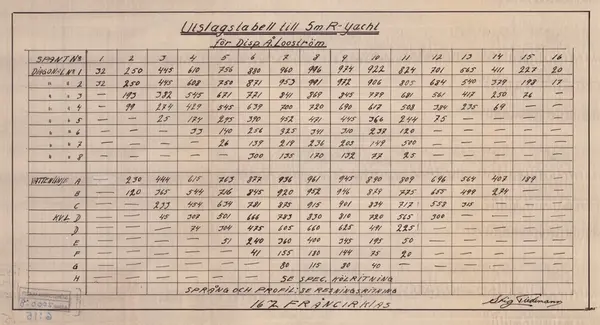 Utslagstabell till 5mR-Yacht
för Disp. Å. Looström
SPANT No 1 2 3 4 5 6 7 8 9 10 11 12 13 14 15 16
DIAGONAL No 1 32 250 445 610 756 880 960 996 974 922 824 701 565 411 227 20
" " 2 32 250 445 608 750 871 953 991 972 906 805 684 540 379 198 17
" " 3 — 193 382 545 671 771 841 869 845 779 681 561 417 250 76 —
" " 4 — 99 274 429 545 639 700 720 690 617 508 384 235 69 —
" " 5 — — 25 174 295 390 452 471 445 366 244 75 —
" " 6 — — — 33 140 256 325 341 310 237 120 —
" " 7 — — — — 26 139 219 236 203 149 500 —
" " 8 — — — — — 300 135 170 132 77 25 —
VATTENLINJE A — 230 444 615 763 877 936 961 945 890 809 696 564 407 189 —
B — 120 365 544 716 845 920 952 946 859 775 655 499 274 — —
C — — 233 454 634 781 875 915 901 834 717 558 315 —
KVL D — — 45 308 501 666 783 830 810 720 565 300 —
D — — — 74 304 475 605 660 625 491 225 —
E — — — — 51 240 360 400 345 195 50 —
F — — — — — 41 155 180 144 75 20 —
G — — — — — — 80 115 80 40 — —
H — — — — — — SE SPEC. KÖLRITNING
SPRÅNG OCH PROFIL: SE RESNINGSRITNING